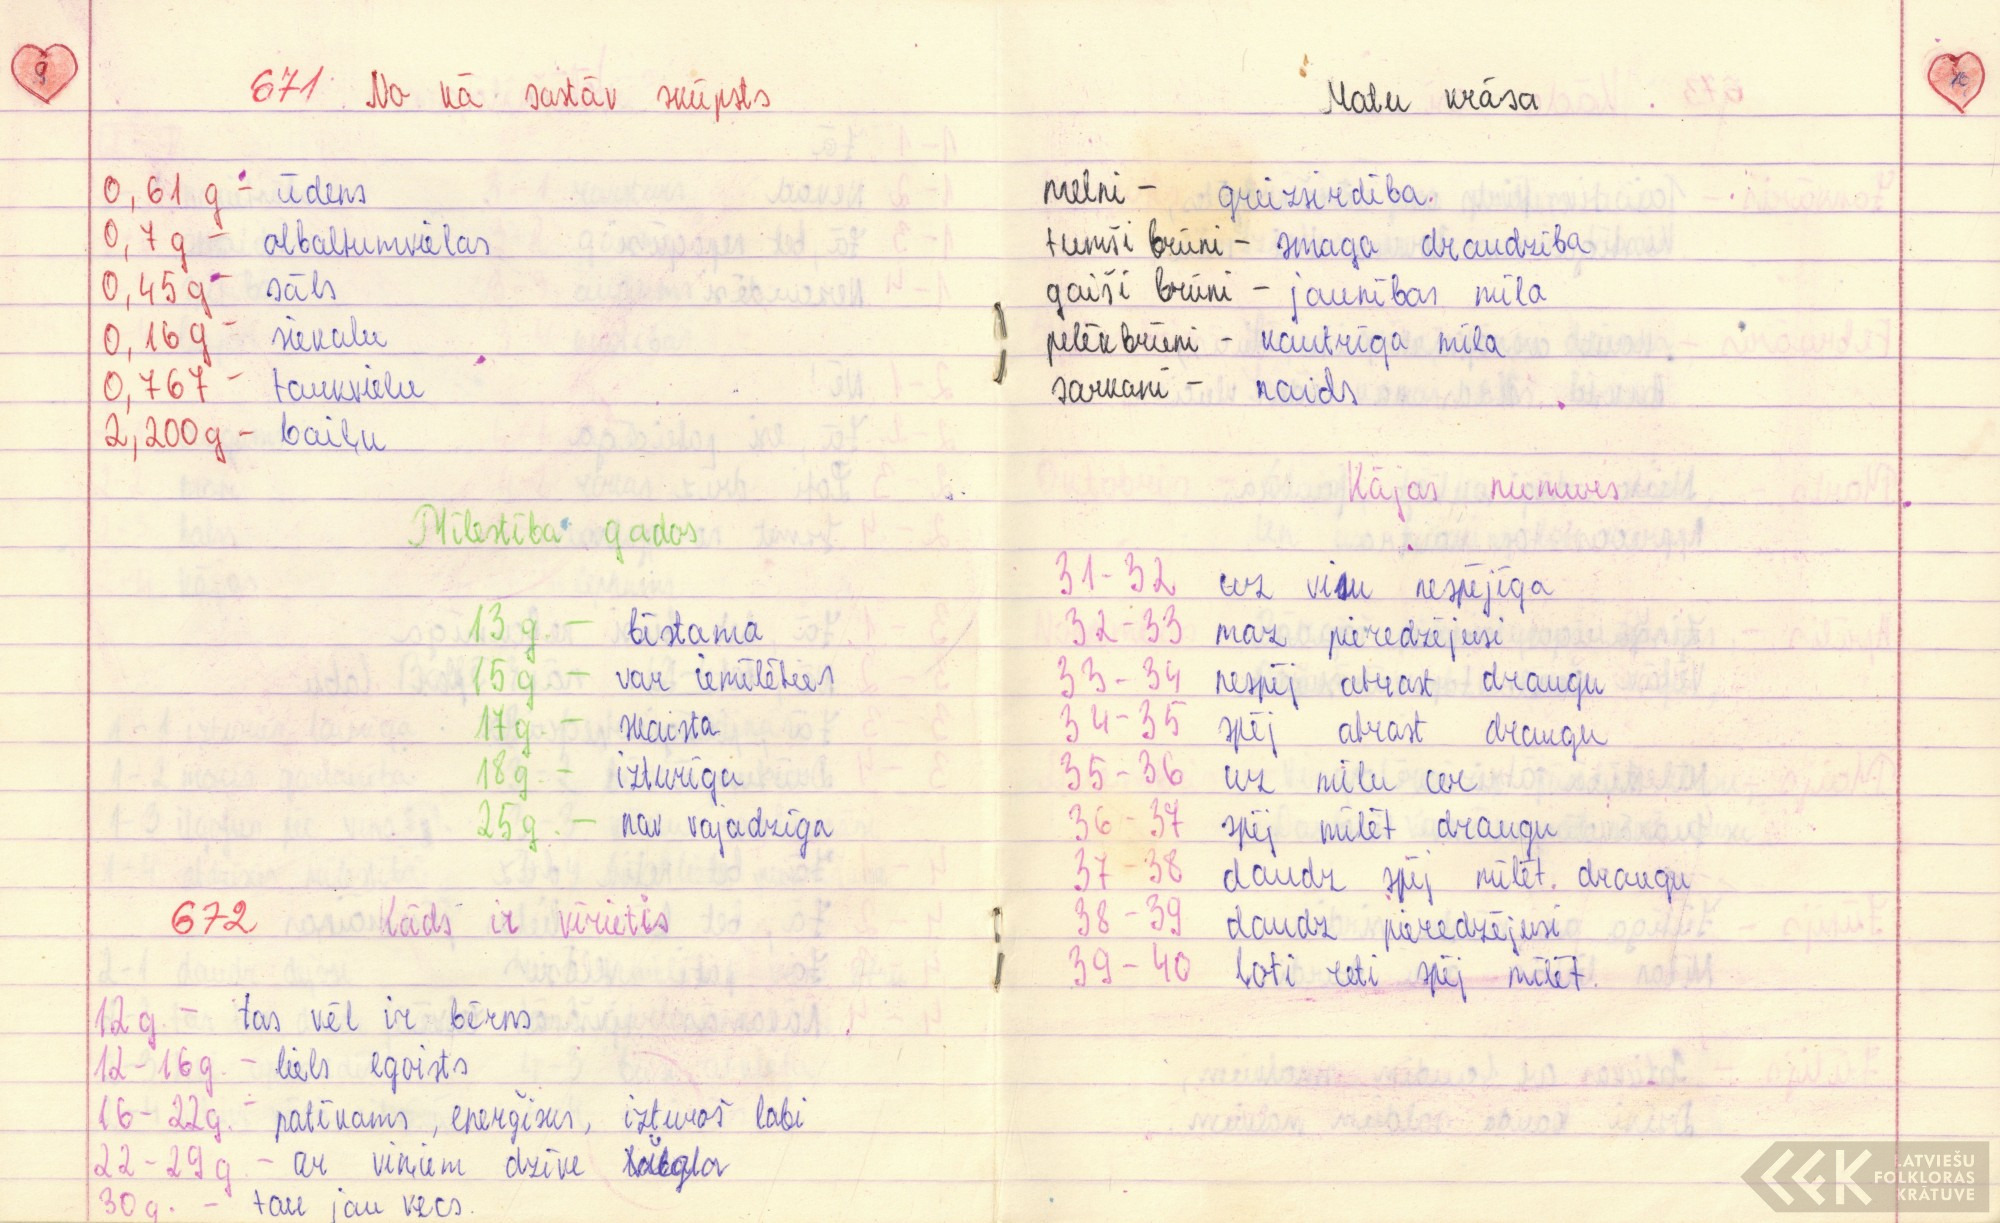 9
671. No kā sastāv skūpsts
0,61 g - ūdens
0,7 g - olbaltumvielas
0,45 g - sāls
0,16 g - siekalu
0,767 - taukvielu
2,200 g - baiļu
Mīlestība gados
13 g - bīstama
15 g - var iemīlēties
17 g. - skaista
18 g. - izturīga
25 g. - nav vajadzīga
672 Kāds ir vīrietis
12 g - tas vēl ir bērns
12-16 g. - liels egoists
16-22 g. - patīkams, enerģisks, izturas labi
22-29 g. - ar viņiem dzīve
30 g. - tau jau vecs.
10
Matu krāsa
melni - greizsirdība.
tumši brūni - smaga draudzība
gaiši brūni - jaunības mīla
pelēkbrūni - kautrīga mīla
sarkani - naids
Kājas numurs
31-32 uz visu nespējīga
32-33 maz pieredzējusi
33-34 nespēj atrast draugu
34-35 spēj atrast draugu
35-36 uz mīlu cer
36-37 spēj mīlēt draugu
37-38 daudz spēj mīlēt. draugu
38-39 daudz pieredzējusi
39-40 ļoti reti spēj mīlēt.
LATVIEŠU
FOLKLORAS
KRĀTUVE